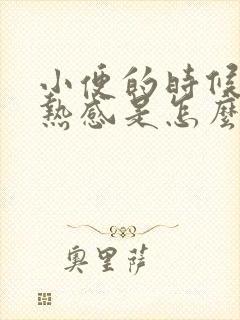 小便的時候
熱感是怎麼
奧里薩